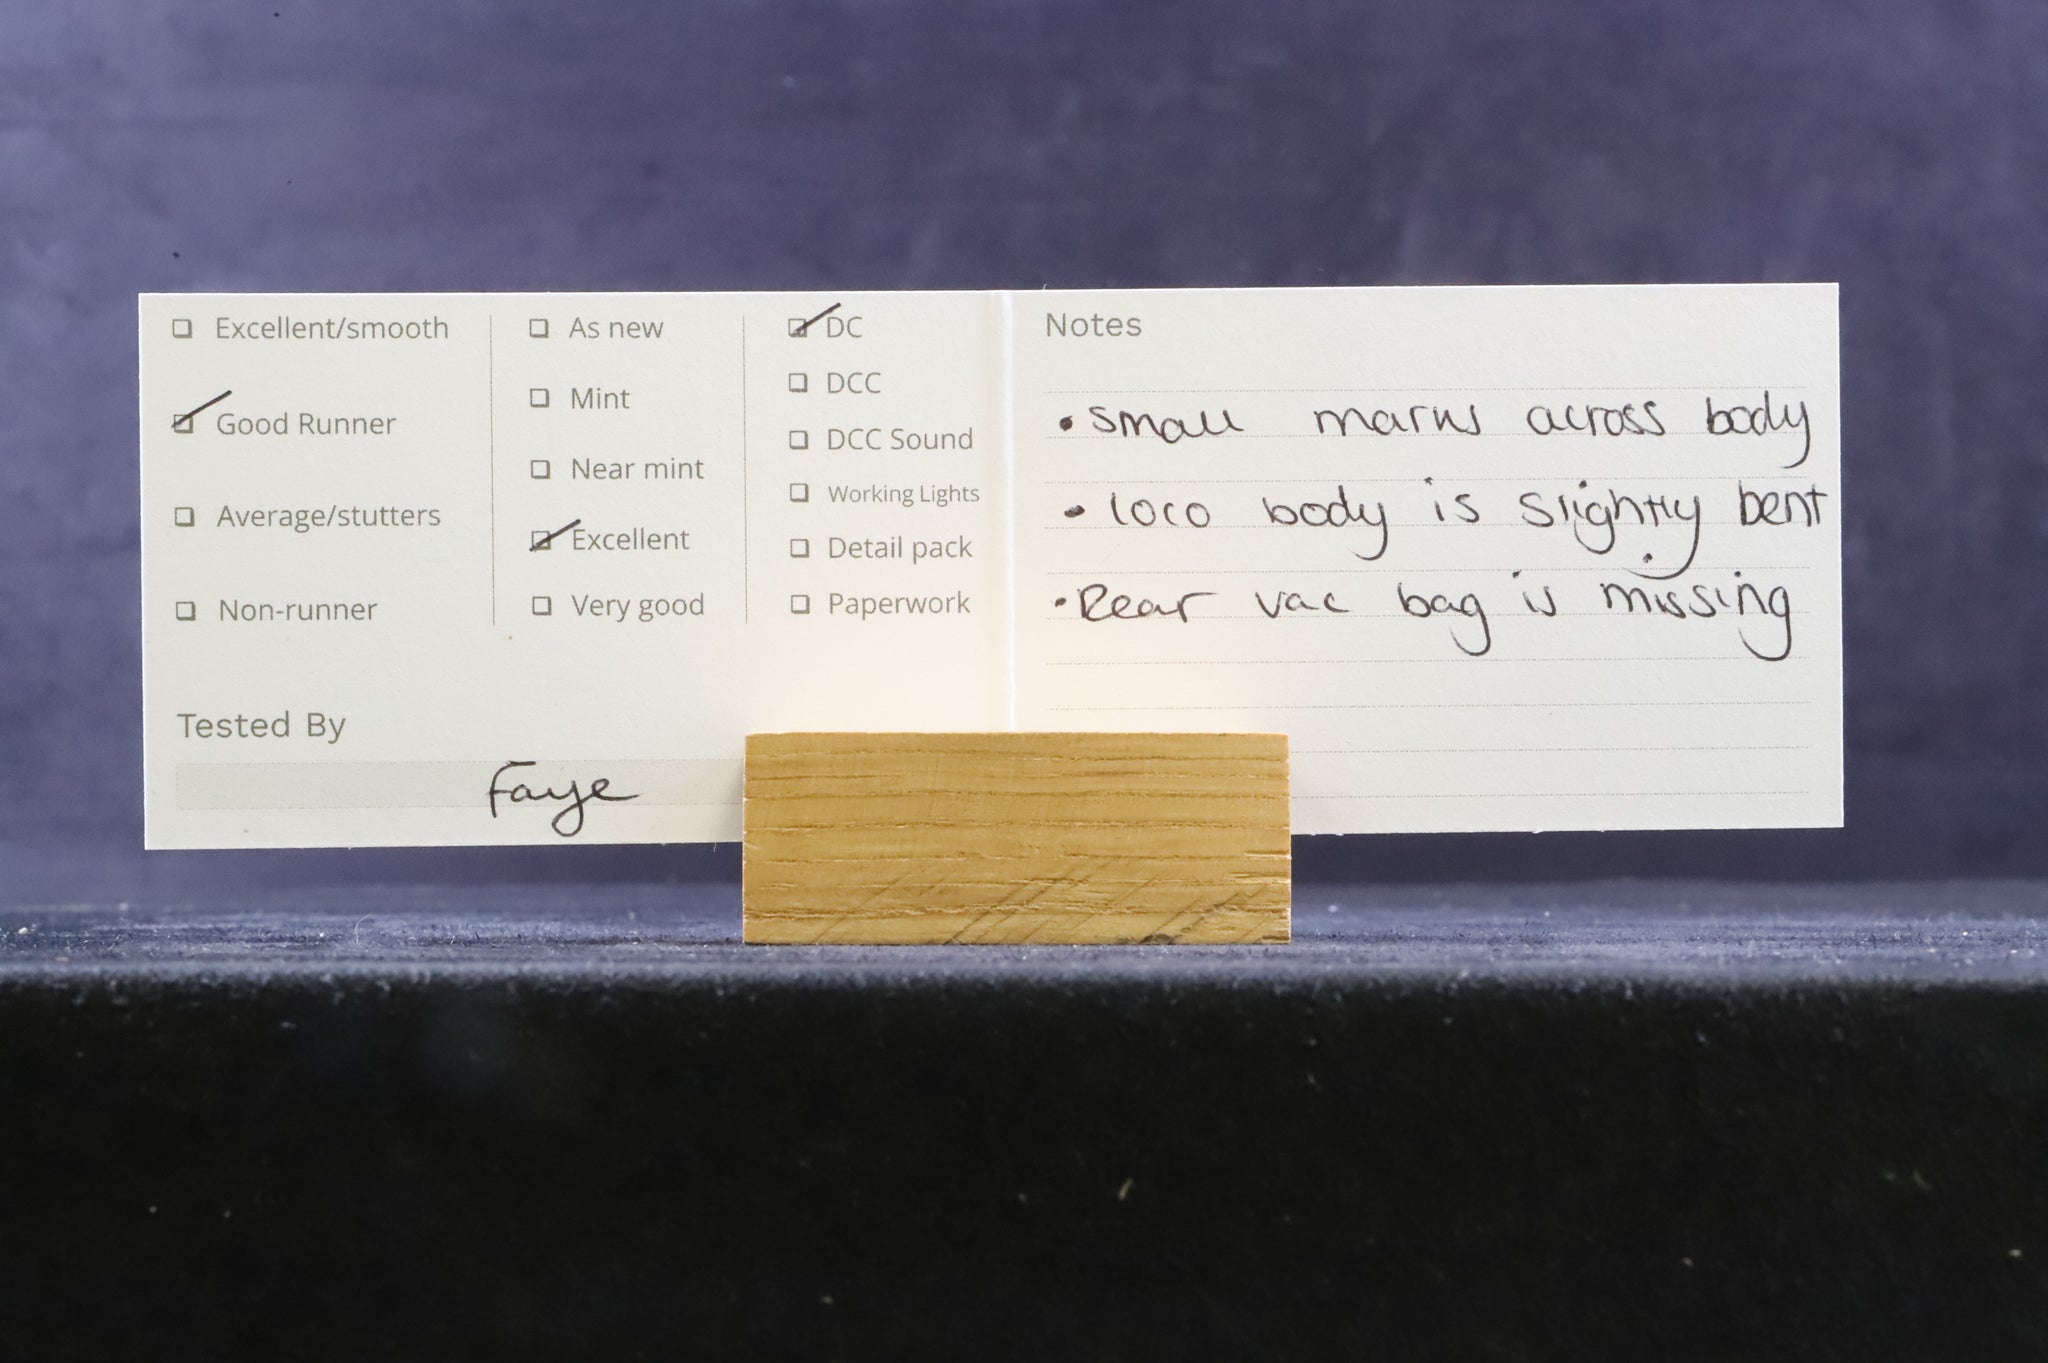 ☐ Excellent/smooth
☑ Good Runner
☐ Average/stutters
☐ Non-runner
☐ As new
☐ Mint
☐ Near mint
☑ Excellent
☐ Very good
☑ DC
☐ DCC
☐ DCC Sound
☐ Working Lights
☐ Detail pack
☐ Paperwork
Tested By
Faye
Notes
• small marks across body
• loco body is slightly bent
• Rear vac bag is missing